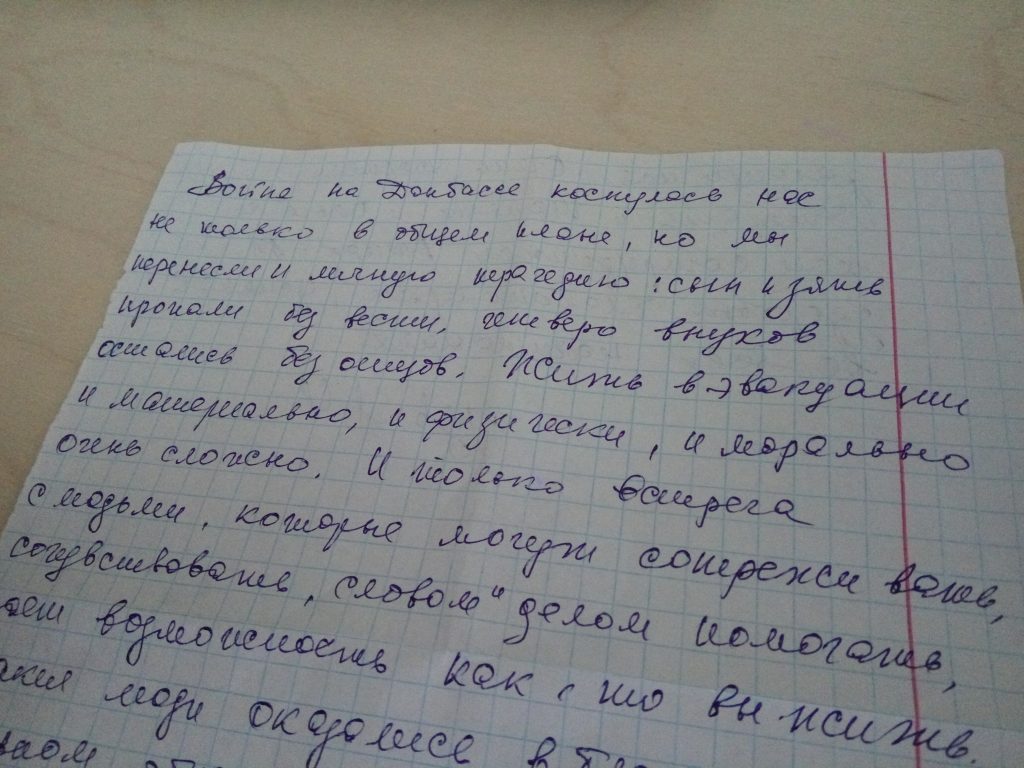 Война на Донбассе коснулась нас
не только в общем плане, но мы
перенесли и личную трагедию: сын и зять
пропали без вести, четверо внуков
остались без отцов. Жить в эвакуации
и материально, и физически, и морально
очень сложно. И только встреча
с людьми, которые могут сопереживать,
сочувствовать, словом и делом помогать,
возможность как-то выжить.
люди оказались в